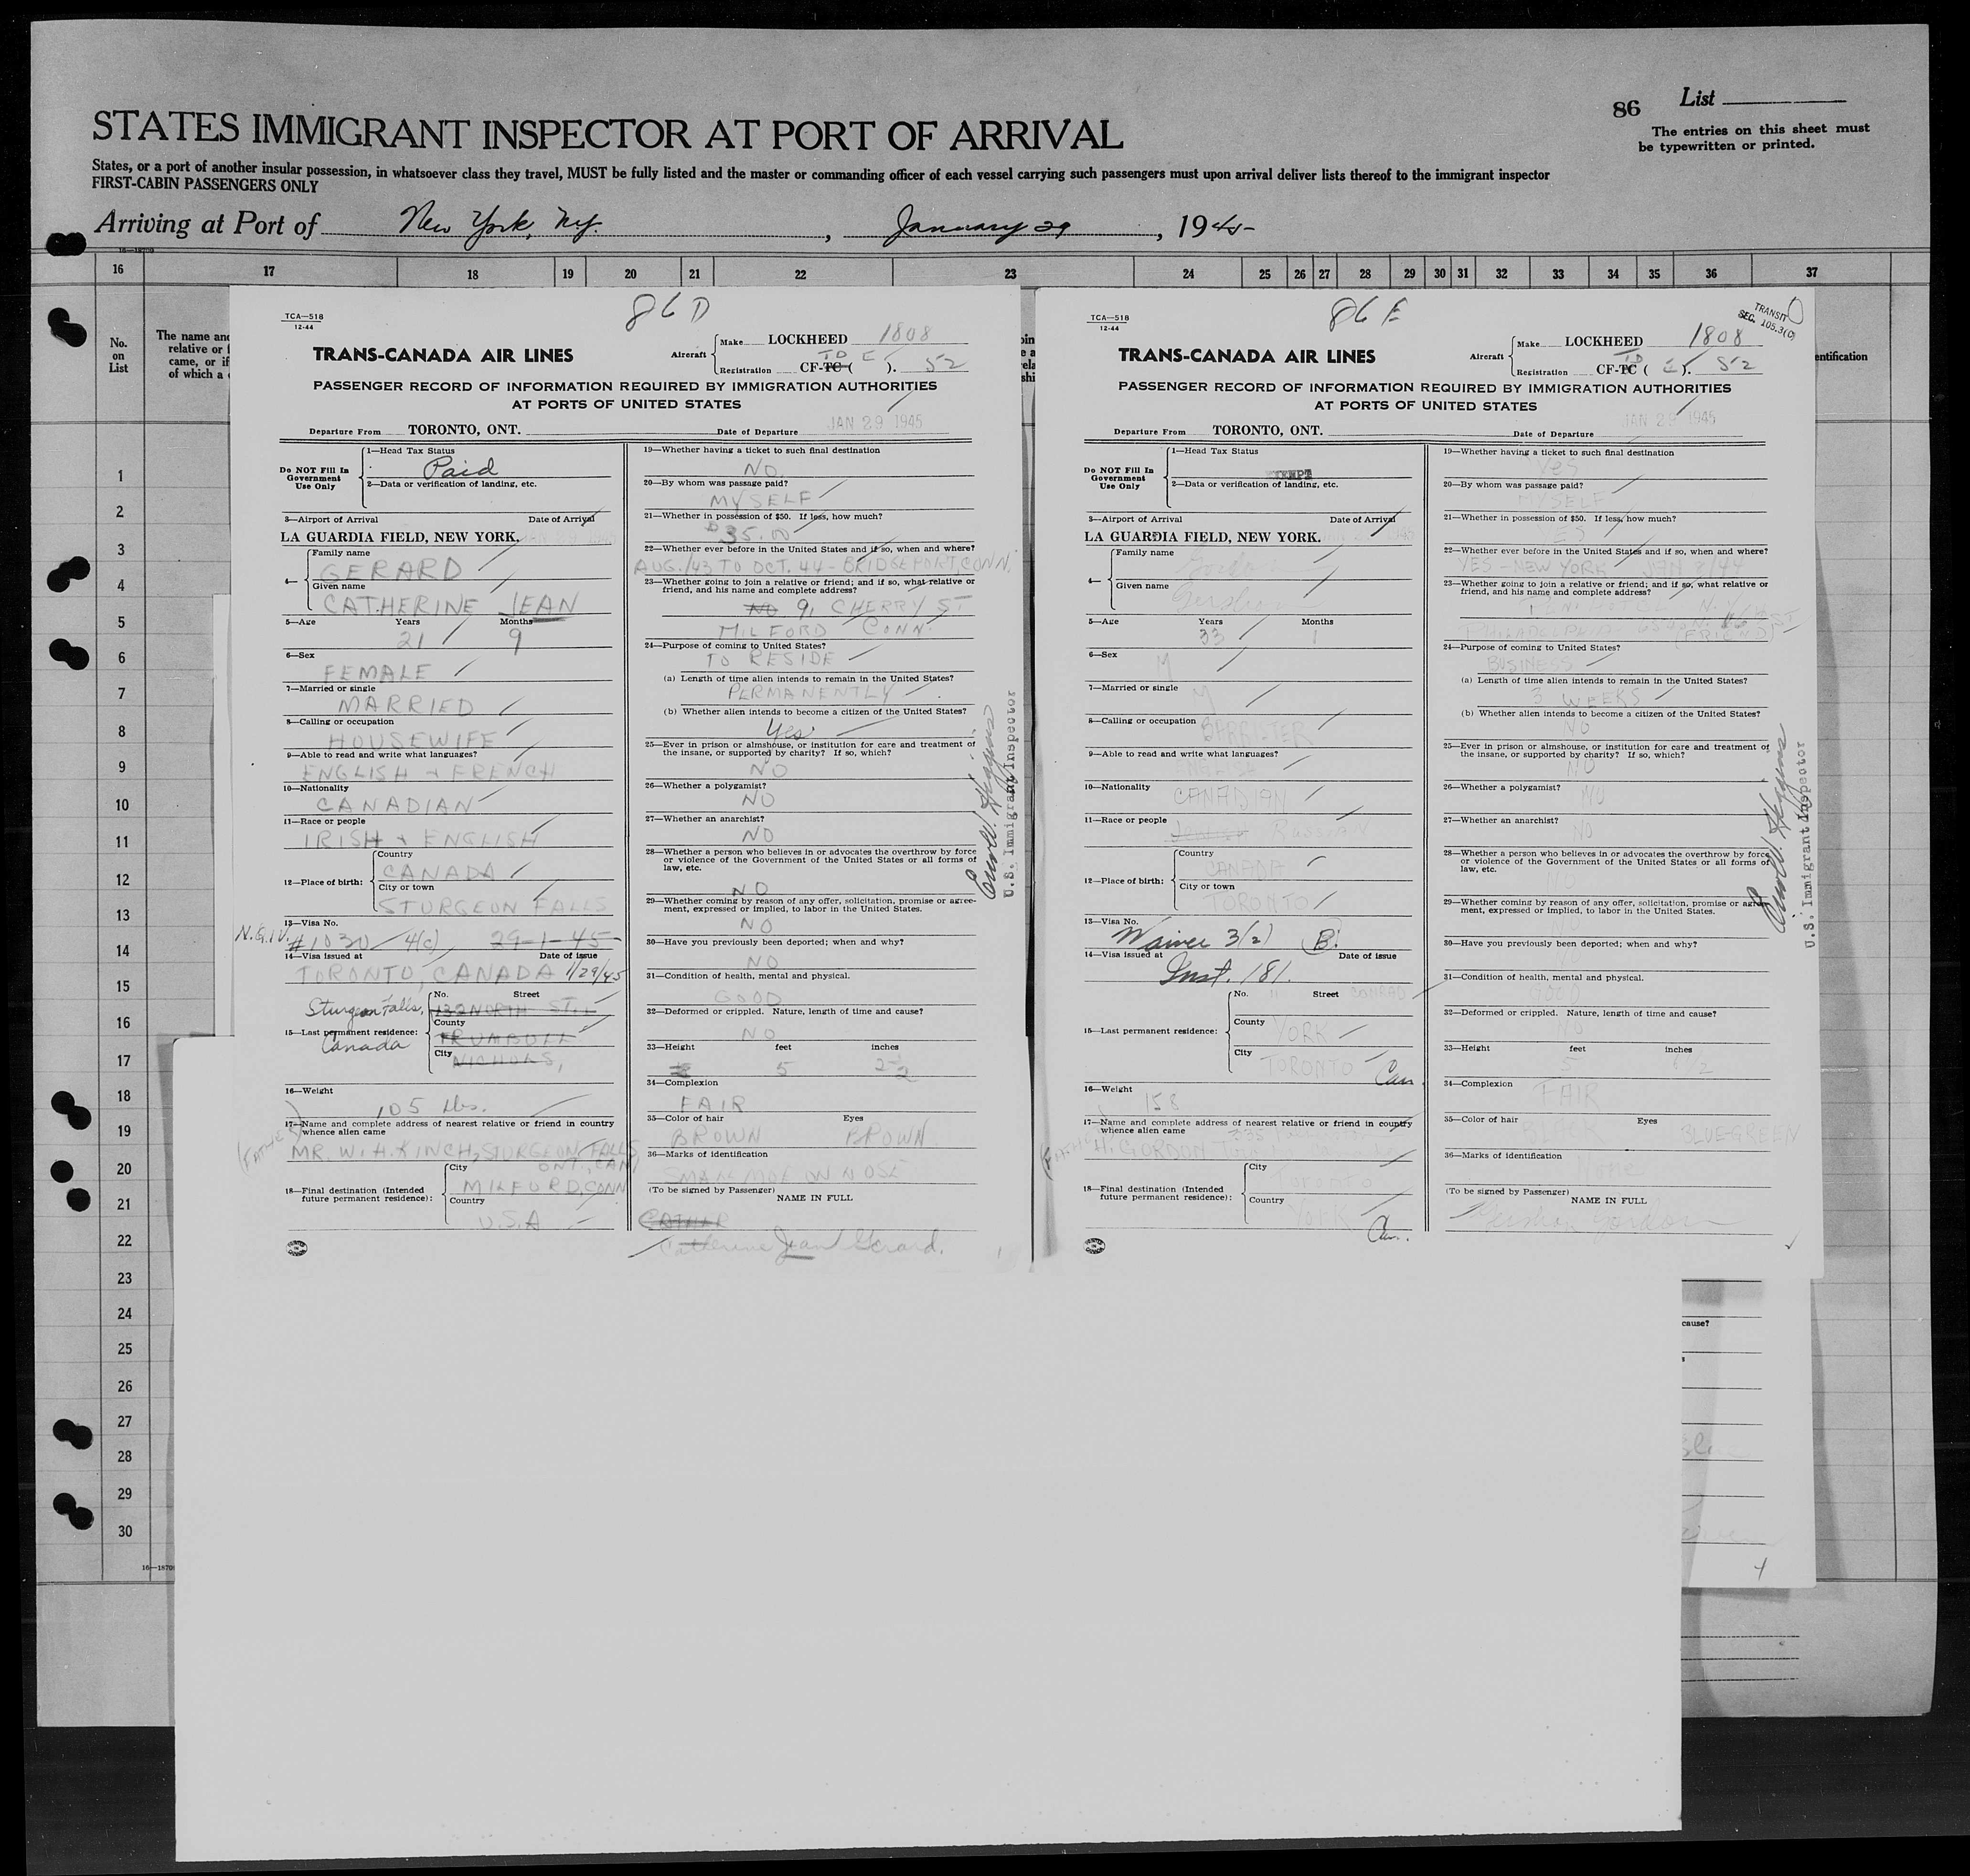 86 List
The entries on this sheet must
be typewritten or printed.
STATES IMMIGRANT INSPECTOR AT PORT OF ARRIVAL
States, or a port of another insular possession, in whatsoever class they travel, MUST be fully listed and the master or commanding officer of each vessel carrying such passengers must upon arrival deliver lists thereof to the immigrant inspector
FIRST-CABIN PASSENGERS ONLY
Arriving at Port of New York, N.Y., January 29, 1945
16 17 18 19 20 21 22 23 24 25 26 27 28 29 30 31 32 33 34 35 36 37
No.
on
List
The name and
relative or
came, or if
of which a
entification
1
2
3
4
5
6
7
8
9
10
11
12
13
14
15
16
17
18
19
20
21
22
23
24
25
26
27
28
29
30
86 D
TCA—518
12-44
TRANS-CANADA AIR LINES
Aircraft
Make LOCKHEED 1808
TD E
Registration CF-TC ( ). 52
PASSENGER RECORD OF INFORMATION REQUIRED BY IMMIGRATION AUTHORITIES
AT PORTS OF UNITED STATES
Departure From TORONTO, ONT. Date of Departure JAN 29 1945
Do NOT Fill In
Government
Use Only
1—Head Tax Status
Paid
2—Data or verification of landing, etc.
3—Airport of Arrival Date of Arrival
LA GUARDIA FIELD, NEW YORK.
4—
Family name
GERARD
Given name
CATHERINE JEAN
5—Age Years Months
21 9
6—Sex
FEMALE
7—Married or single
MARRIED
8—Calling or occupation
HOUSEWIFE
9—Able to read and write what languages?
ENGLISH + FRENCH
10—Nationality
CANADIAN
11—Race or people
IRISH + ENGLISH
12—Place of birth:
Country
CANADA
City or town
STURGEON FALLS
13—Visa No.
N.Q.I.V. #1030 4(c) 29-1-45
14—Visa issued at Date of issue
TORONTO, CANADA 1/29/45
15—Last permanent residence:
Sturgeon Falls,
Canada
No. Street
132 NORTH ST.
County
TRUMBULL
City
NICHOLS,
16—Weight
105 Lbs.
17—Name and complete address of nearest relative or friend in country
whence alien came
(FATHER)
MR. W. H. KINCH, STURGEON FALLS
ONT. CAN.
18—Final destination (Intended
future permanent residence):
City
MILFORD, CONN
Country
U.S.A
19—Whether having a ticket to such final destination
NO
20—By whom was passage paid?
MYSELF
21—Whether in possession of $50. If less, how much?
$35.00
22—Whether ever before in the United States and if so, when and where?
AUG./43 TO OCT. 44 - BRIDGEPORT, CONN.
23—Whether going to join a relative or friend; and if so, what relative or
friend, and his name and complete address?
NO 9, CHERRY ST
MILFORD CONN.
24—Purpose of coming to United States?
TO RESIDE
(a) Length of time alien intends to remain in the United States?
PERMANENTLY
(b) Whether alien intends to become a citizen of the United States?
Yes
25—Ever in prison or almshouse, or institution for care and treatment of
the insane, or supported by charity? If so, which?
NO
26—Whether a polygamist?
NO
27—Whether an anarchist?
NO
28—Whether a person who believes in or advocates the overthrow by force
or violence of the Government of the United States or all forms of
law, etc.
NO
29—Whether coming by reason of any offer, solicitation, promise or agree-
ment, expressed or implied, to labor in the United States.
NO
30—Have you previously been deported; when and why?
NO
31—Condition of health, mental and physical.
GOOD
32—Deformed or crippled. Nature, length of time and cause?
NO
33—Height feet inches
5 2½
34—Complexion
FAIR
35—Color of hair Eyes
BROWN BROWN
36—Marks of identification
SMALL MOLE ON NOSE
(To be signed by Passenger) NAME IN FULL
CATHER
Catherine Jean Gerard.
U.S. Immigrant Inspector
86 E
TRANSIT
SEC. 105.3(0)
TCA—518
12-44
TRANS-CANADA AIR LINES
Aircraft
Make LOCKHEED 1808
TD
Registration CF-TC ( E ). 52
PASSENGER RECORD OF INFORMATION REQUIRED BY IMMIGRATION AUTHORITIES
AT PORTS OF UNITED STATES
Departure From TORONTO, ONT. Date of Departure JAN 29 1945
Do NOT Fill In
Government
Use Only
1—Head Tax Status
EXEMPT
2—Data or verification of landing, etc.
3—Airport of Arrival Date of Arrival
LA GUARDIA FIELD, NEW YORK.
4—
Family name
Gordon
Given name
Gershon
5—Age Years Months
33 1
6—Sex
M
7—Married or single
M
8—Calling or occupation
BARRISTER
9—Able to read and write what languages?
ENGLISH
10—Nationality
CANADIAN
11—Race or people
Russian
12—Place of birth:
Country
CANADA
City or town
TORONTO
13—Visa No.
Waiver 3(2) B.
14—Visa issued at Date of issue
Inst. 181.
15—Last permanent residence:
No. Street
CONRAD
County
YORK
City
TORONTO Can.
16—Weight
158
17—Name and complete address of nearest relative or friend in country
whence alien came
H. GORDON 335
18—Final destination (Intended
future permanent residence):
City
Toronto
Country
York
Can.
19—Whether having a ticket to such final destination
Yes
20—By whom was passage paid?
MYSELF
21—Whether in possession of $50. If less, how much?
YES
22—Whether ever before in the United States and if so, when and where?
YES - NEW YORK JAN 8/44
23—Whether going to join a relative or friend; and if so, what relative or
friend, and his name and complete address?
PHILADELPHIA (FRIEND)
24—Purpose of coming to United States?
BUSINESS
(a) Length of time alien intends to remain in the United States?
3 WEEKS
(b) Whether alien intends to become a citizen of the United States?
NO
25—Ever in prison or almshouse, or institution for care and treatment of
the insane, or supported by charity? If so, which?
NO
26—Whether a polygamist?
NO
27—Whether an anarchist?
NO
28—Whether a person who believes in or advocates the overthrow by force
or violence of the Government of the United States or all forms of
law, etc.
29—Whether coming by reason of any offer, solicitation, promise or agree-
ment, expressed or implied, to labor in the United States.
30—Have you previously been deported; when and why?
31—Condition of health, mental and physical.
GOOD
32—Deformed or crippled. Nature, length of time and cause?
NO
33—Height feet inches
5 ½
34—Complexion
FAIR
35—Color of hair Eyes
BLUE-GREEN
36—Marks of identification
None
(To be signed by Passenger) NAME IN FULL
Gershon Gordon
U.S. Immigrant Inspector
cause?
16—18709